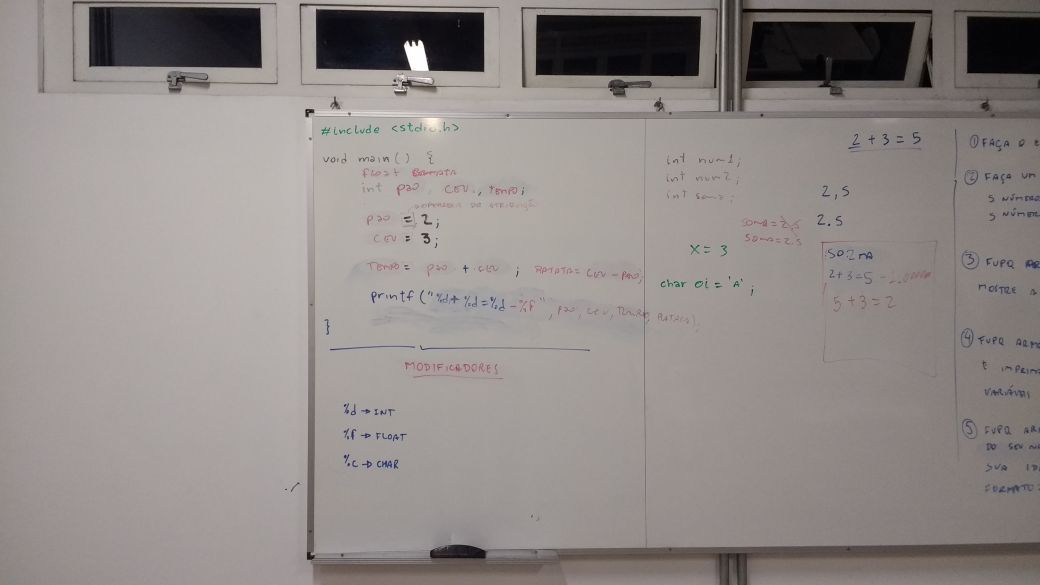 #include <stdio.h>
void main() {
float BATATA
int pao, CEU, TEMPO;
OPERADOR DE ATRIBUIÇÃO
pao = 2;
CEU = 3;
TEMPO = pao + CEU; BATATA = CEU - PAO;
printf("%d + %d = %d - %f", pao, CEU, TEMPO, BATATA);
}
MODIFICADORES
%d → INT
%f → FLOAT
%c → CHAR
int num1;
int num2;
int soma;
SOMA = 2,5
SOMA = 2.5
X = 3
char oi = 'A';
2 + 3 = 5
2,5
2.5
2+3=5 -1.00000
5+3=2
① FAÇA O
② FAÇA UM
5 NÚMERO
5 NÚMERO
③ FUPQ
MOSTRE A
④ FUPQ ARM
E IMPRIM
VARIÁVEI
⑤ FUPQ AR
DO SEU N
SUA ID
FORMATO: